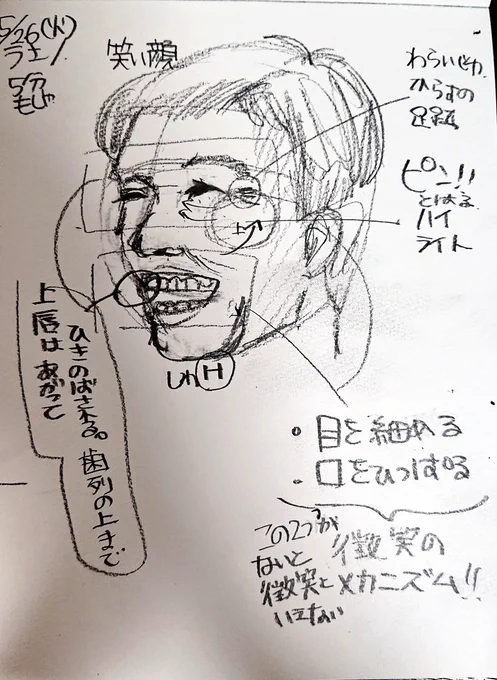 5/26(火)
ラエ
5分
もしゃ
笑い顔
わらいじわ
カラスの
足跡
ピン!!
とはる
ハイ
ライト
上唇は あがって
ひきのばされる。歯列の上まで
しわ H
・目を細める
・口をひっぱる
この2つが
ないと
微笑と
いえない
微笑の
メカニズム!!